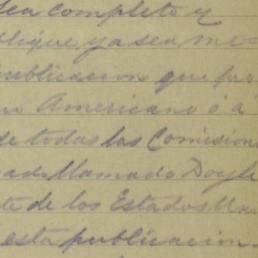 sea completo y
blique, ya sea me=
publicacion que pro
no Americano ó á
de todas las Comision
ead. llamado Doyle
te de los Estados Un
esta publicacion